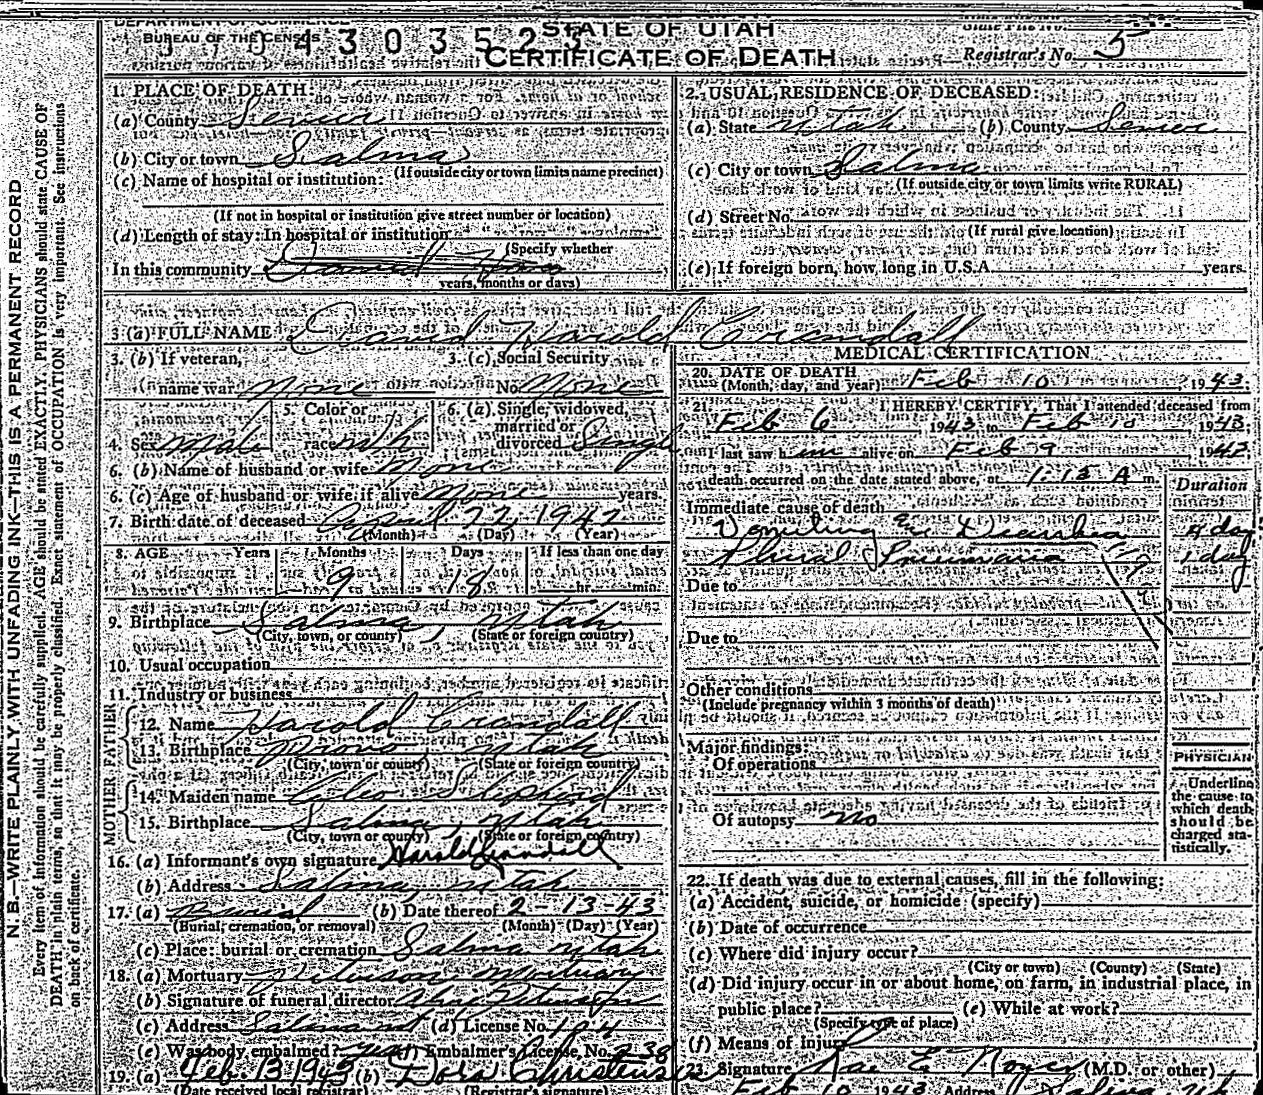 DEPARTMENT OF COMMERCE
BUREAU OF THE CENSUS
STATE OF UTAH
CERTIFICATE OF DEATH
State File No.
Registrar's No. 5
N. B.—WRITE PLAINLY WITH UNFADING INK—THIS IS A PERMANENT RECORD
Every item of information should be carefully supplied. AGE should be stated EXACTLY. PHYSICIANS should state CAUSE OF
DEATH in plain terms, so that it may be properly classified. Exact statement of OCCUPATION is very important. See instructions
on back of certificate.
1. PLACE OF DEATH:
(a) County Sevier
(b) City or town Salina
(If outside city or town limits name precinct)
(c) Name of hospital or institution:
(If not in hospital or institution give street number or location)
(d) Length of stay: In hospital or institution
(Specify whether
In this community
years, months or days)
2. USUAL RESIDENCE OF DECEASED:
(a) State Utah (b) County Sevier
(c) City or town Salina
(If outside city or town limits write RURAL)
(d) Street No.
(If rural give location)
(e) If foreign born, how long in U.S.A. years.
3 (a) FULL NAME David Harold Crandall
3. (b) If veteran, 3. (c) Social Security
name war None No. None
4. Sex Male 5. Color or race wh 6. (a) Single, widowed, married or divorced Single
6. (b) Name of husband or wife None
6. (c) Age of husband or wife if alive None years.
7. Birth date of deceased April 22 1942
(Month) (Day) (Year)
8. AGE Years Months Days If less than one day
9 18 hr. min.
9. Birthplace Salina, Utah
(City, town, or county) (State or foreign country)
10. Usual occupation
11. Industry or business
FATHER
12. Name Harold Crandall
13. Birthplace Provo, Utah
(City, town or county) (State or foreign country)
MOTHER
14. Maiden name Shepherd
15. Birthplace Salina, Utah
(City, town or county) (State or foreign country)
16. (a) Informant's own signature Harold Crandall
(b) Address Salina, Utah
17. (a) Burial (b) Date thereof 2-13-43
(Burial, cremation, or removal) (Month) (Day) (Year)
(c) Place: burial or cremation Salina Utah
18. (a) Mortuary Peterson Mortuary
(b) Signature of funeral director Peterson
(c) Address Salina Ut (d) License No. 104
(e) Was body embalmed? yes (f) Embalmer's License No. 238
19. (a) Feb. 13 1943 (b) Dora Christensen
(Date received local registrar) (Registrar's signature)
MEDICAL CERTIFICATION
20. DATE OF DEATH
(Month, day, and year) Feb 10 1943
21. I HEREBY CERTIFY, That I attended deceased from
Feb 6 1943 to Feb 10 1943.
I last saw him alive on Feb 9 194
death occurred on the date stated above, at 1:15 A m.
Duration
Immediate cause of death
Vomiting & Diarrhea 4 day
Plural Pneumonia 1 day
Due to
Due to
Other conditions
(Include pregnancy within 3 months of death)
Major findings:
Of operations
Of autopsy no
PHYSICIAN
Underline
the cause to
which death
should be
charged sta-
tistically.
22. If death was due to external causes, fill in the following:
(a) Accident, suicide, or homicide (specify)
(b) Date of occurrence
(c) Where did injury occur?
(City or town) (County) (State)
(d) Did injury occur in or about home, on farm, in industrial place, in
public place? (e) While at work?
(Specify type of place)
(f) Means of injury
23. Signature Rae E. Noyes (M.D. or other)
Feb 10 1943 Address Salina, Ut